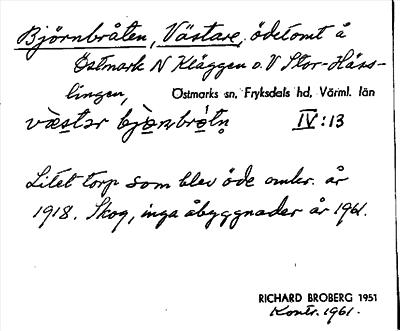 Björnbråten, Västare, ödetomt å
Östmark N Kläggen o. V Stor-Häss-
lingen, Östmarks sn, Fryksdals hd, Värml. län
västər bjɔ̀ɳbrɷ̀tṇ IV:13
Litet torp som blev öde omkr. år
1918. Skog, inga åbyggnader år 1961.
RICHARD BROBERG 1951
Kontr. 1961.